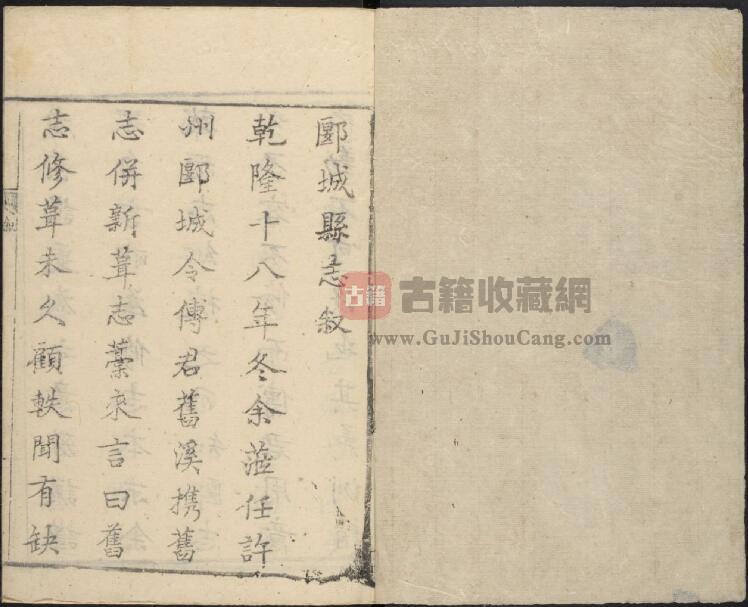 郾城縣志叙
乾隆十八年冬余蒞任許
州郾城令傅君舊溪携舊
志併新葺志藁來言曰舊
志修葺未久顧軼聞有缺
古籍
古籍收藏網
www.GuJiShouCang.com